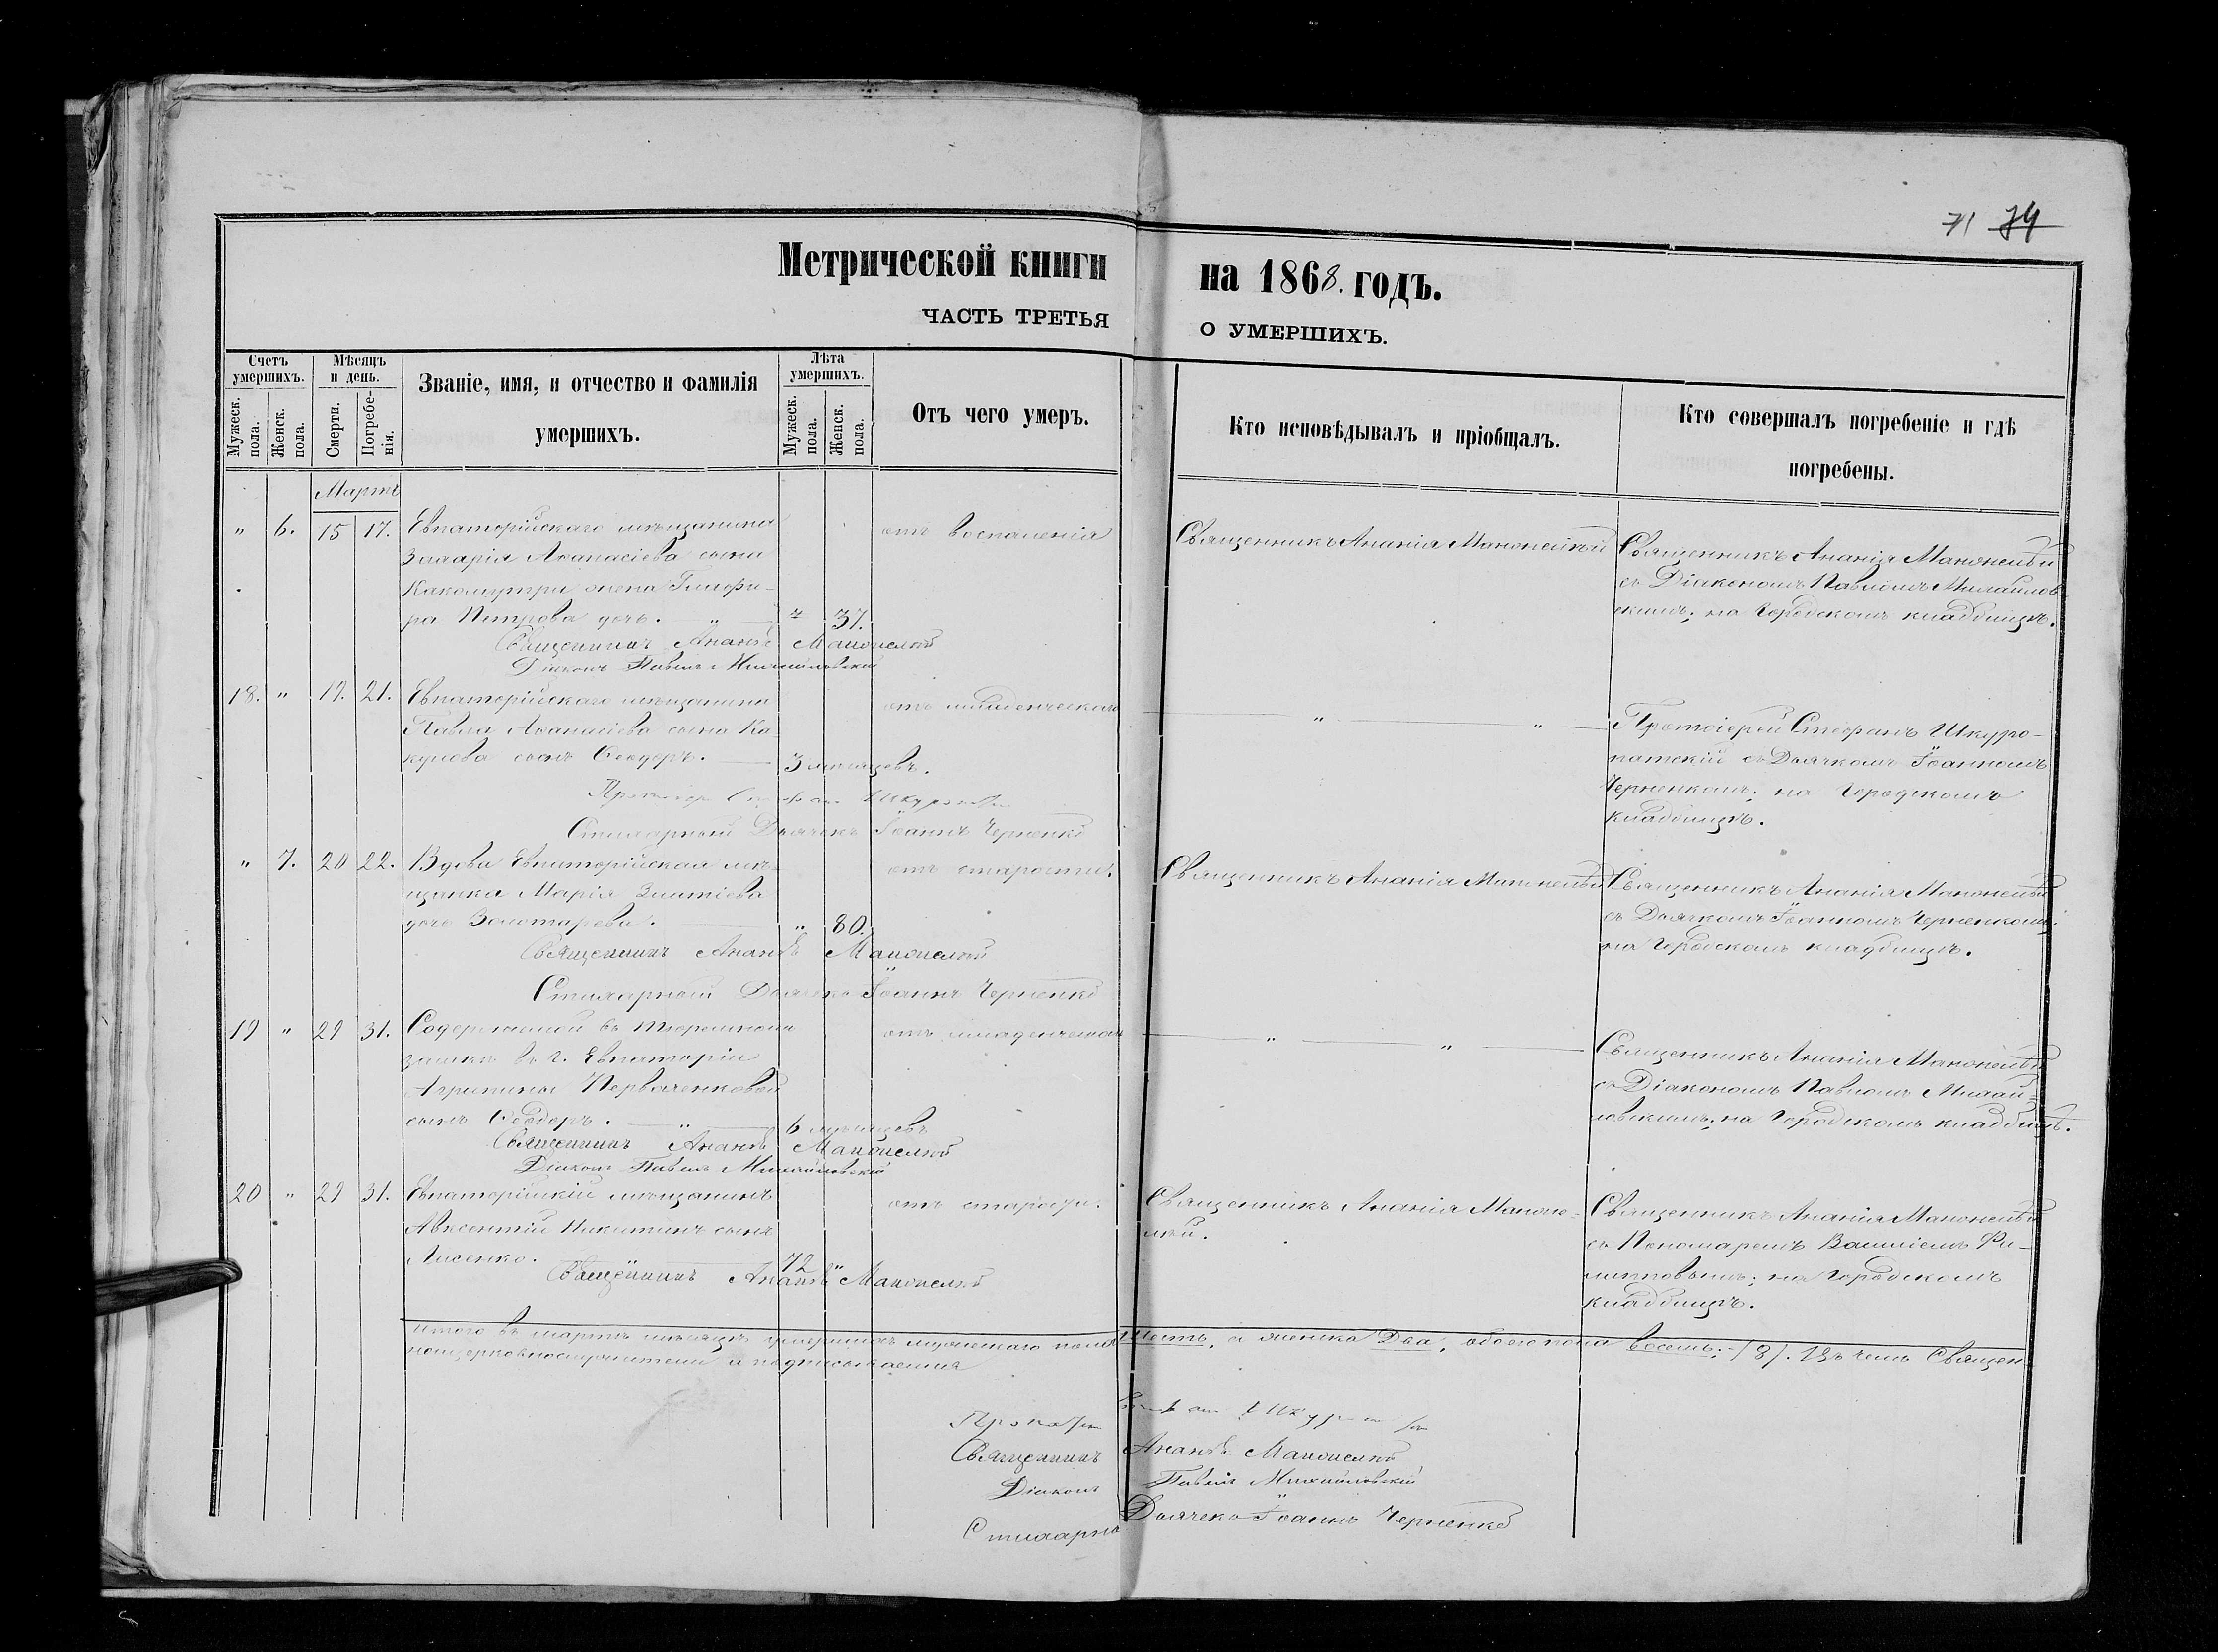 71 74
Метрической книги на 1868. годъ.
ЧАСТЬ ТРЕТЬЯ О УМЕРШИХЪ.
Счетъ умершихъ.
Мужеск. пола.
Женск. пола.
Мѣсяцъ и день.
Смерти.
Погребенія.
Званіе, имя, и отчество и фамилія
умершихъ.
Лѣта умершихъ.
Мужеск. пола.
Женск. пола.
Отъ чего умеръ.
Кто исповѣдывалъ и пріобщалъ.
Кто совершалъ погребеніе и гдѣ
погребены.
Мартъ
" 6. 15 17.
Евпаторійскаго мѣщанина
Афанасіева сына
жена Глафи-
ра Петрова дочь. " 37.
отъ воспаленія
Священникъ Ананія
Священникъ Ананія
съ Діакономъ Павломъ Михайлов-
скимъ; на Городскомъ кладбищѣ.
Священникъ Ананія
Діаконъ Павелъ Михайловскій
18. " 19. 21.
Евпаторійскаго мѣщанина
Павла Афанасіева сына Ка-
кулова сынъ Ѳеодоръ. 3 мѣсяцевъ.
отъ младенческаго
" "
Протоіерей Стефанъ Шкуро-
патскій съ Дьячкомъ Іоанномъ
Черненкомъ; на Городскомъ
кладбищѣ.
Стихарный Дьячекъ Іоаннъ Черненко
" 7. 20 22.
Вдова Евпаторійская мѣ-
щанка Марія
дочь Золотарева. " 80.
отъ старости.
Священникъ Ананія
Священникъ Ананія
съ Дьячкомъ Іоанномъ Черненкомъ;
на Городскомъ кладбищѣ.
Священникъ Ананія
Стихарный Дьячекъ Іоаннъ Черненко
19 " 29 31.
Содержимой въ тюремномъ
замкѣ въ г. Евпаторіи
Агрипины Первоченковой
сынъ Ѳеодоръ. " 6 мѣсяцевъ
отъ младенческаго
" "
Священникъ Ананія
съ Діакономъ Павломъ Михай-
ловскимъ; на Городскомъ кладбищѣ.
Священникъ Ананія
Діаконъ Павелъ Михайловскій
20 " 29 31.
Евпаторійскій мѣщанинъ
Авксентій Никитинъ сынъ
Лисенко. 72 "
отъ старости.
Священникъ Ананія
Священникъ Ананія
съ Пономаремъ Василіемъ Фи-
липповымъ; на Городскомъ
кладбищѣ.
Священникъ Ананія
Итого въ мартѣ мѣсяцѣ умершихъ мужескаго пола шесть, а женска два, обоего пола восемь. /8/. Въ чемъ Священ
ноцерковнослужители и подписываемся
Священникъ Ананія
Діаконъ Павелъ Михайловскій
Стихарный Дьячекъ Іоаннъ Черненко